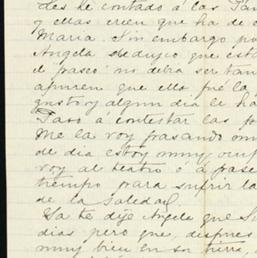 des he contado á las
y ellas creen que ha de
Maria. Sin embargo
Angela deduzco que
el "paseo" no debía ser tan
apuren que ella fué la
gusto y algun día le
Paso á contestar las
Me la voy pasando
de dia estoy muy
voy al teatro ó á
tiempo para sufrir la
de la Soledad.
Ya te dije Angela que
dias pero que, despues
muy bien en su tierra,